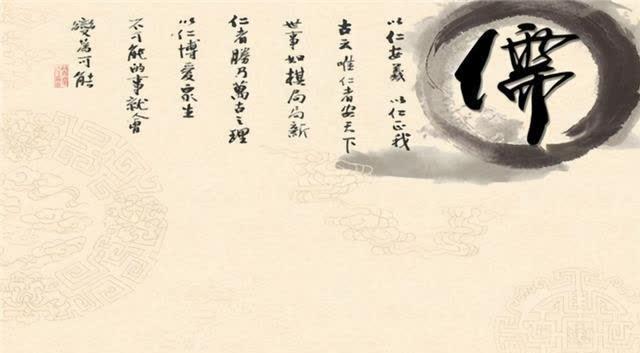 儒
以仁安義 以仁正我
古云唯仁者安天下
世事如棋局局新
仁者勝乃萬古之理
以仁博愛衆生
不可能的事就会
變爲可能